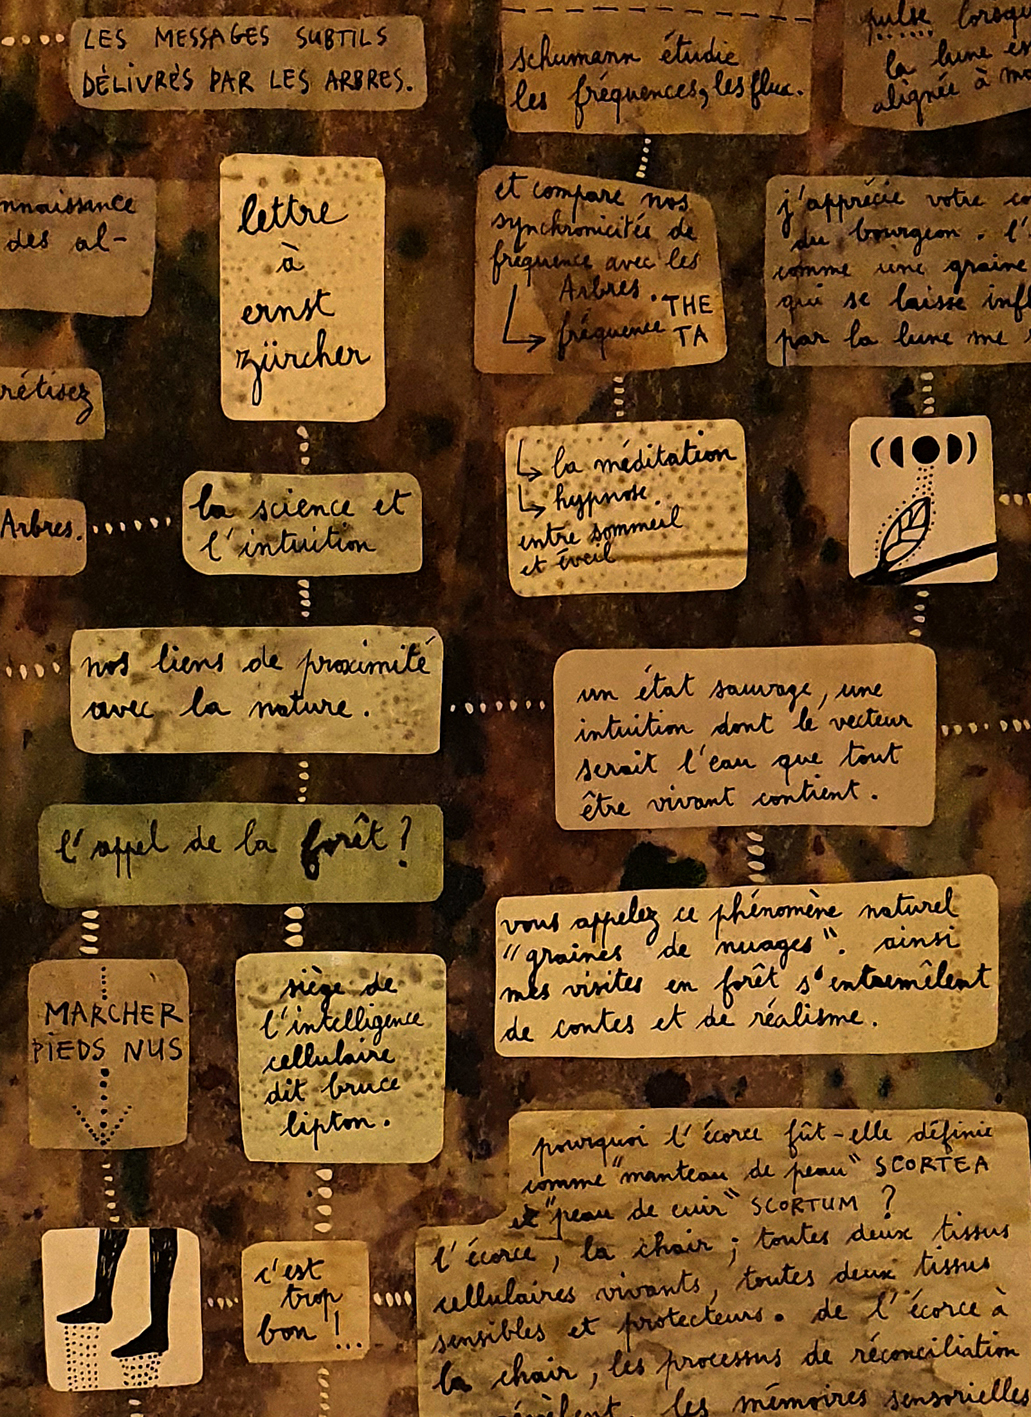 LES MESSAGES SUBTILS
DÉLIVRÉS PAR LES ARBRES.
schumann étudie
les fréquences, les flux.
pulse lorsq
la lune es
alignée à m
nnaissance
des al-
lettre
à
ernst
zürcher
et compare nos
synchronicités de
fréquence avec les
Arbres. THE
fréquence TA
j'apprécie votre co
du bourgeon. l'
comme une graine
qui se laisse inf
par la lune me
rétisez
la méditation
hypnose.
entre sommeil
et éveil
Arbres.
la science et
l'intuition
nos liens de proximité
avec la nature.
un état sauvage, une
intuition dont le vecteur
serait l'eau que tout
être vivant contient.
l'appel de la forêt ?
vous appelez ce phénomène naturel
"graines de nuages". ainsi
mes visites en forêt s'entremêlent
de contes et de réalisme.
MARCHER
PIEDS NUS
siège de
l'intelligence
cellulaire
dit bruce
lipton.
pourquoi l'écorce fût-elle définie
comme "manteau de peau" SCORTEA
et "peau de cuir" SCORTUM ?
l'écorce, la chair ; toutes deux tissus
cellulaires vivants, toutes deux tissus
sensibles et protecteurs. de l'écorce à
la chair, les processus de réconciliation
les mémoires sensorielles
c'est
trop
bon !...